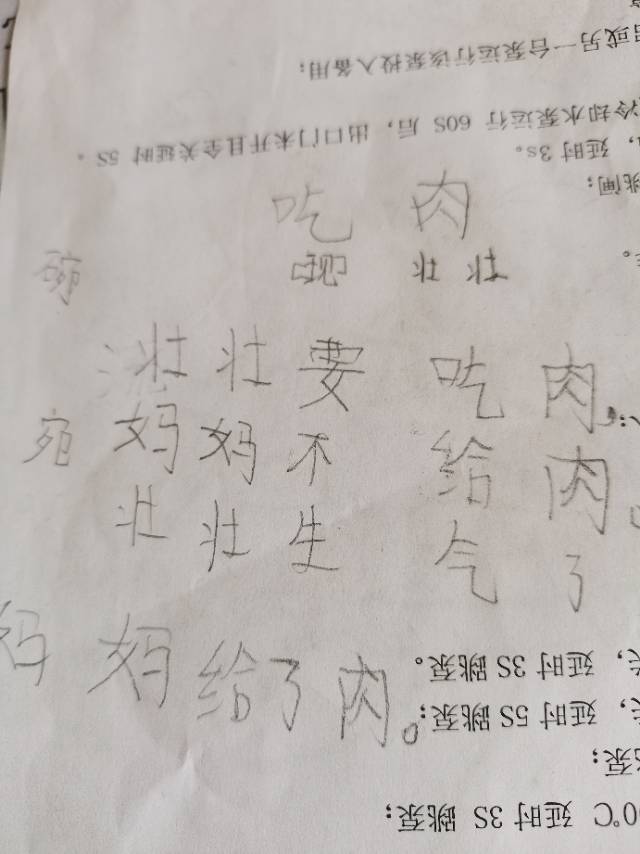 吃 肉
碗 壮 壮
壮 壮 要 吃 肉,
宛 妈 妈 不 给 肉。
壮 壮 生 气 了
妈 妈 给 了 肉。
或另一台泵运行该泵投入备用;
冷却水泵运行 60S 后, 出口门未开且全关延时 5S 。
, 延时 3s。
跳闸:
, 延时 3S 跳泵。
, 延时 5S 跳泵;
泵;
0℃ 延时 3S 跳泵;